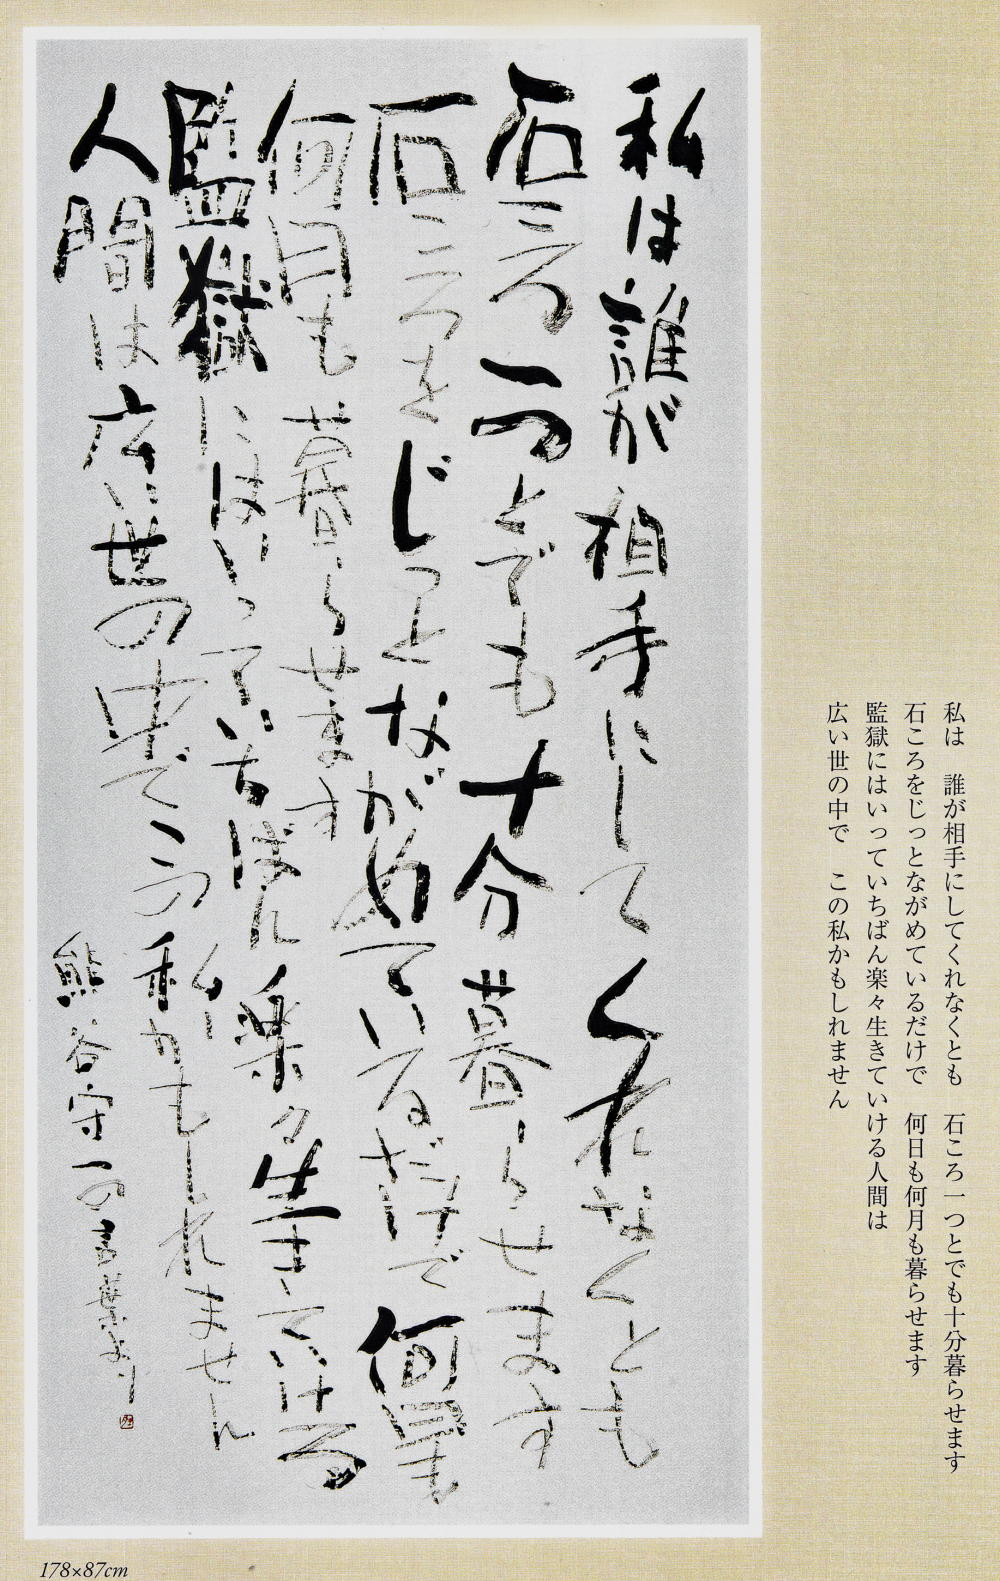 私は誰が相手にしてくれなくとも
石ころ一つとでも十分暮らせます
石ころをじっとながめているだけで何日も
何月も暮らせます
監獄にはいっていちばん楽々生きていける
人間は広い世の中でこの私かもしれません
熊谷守一の言葉より
私は　誰が相手にしてくれなくとも　石ころ一つとでも十分暮らせます
石ころをじっとながめているだけで　何日も何月も暮らせます
監獄にはいっていちばん楽々生きていける人間は
広い世の中で　この私かもしれません
178×87cm